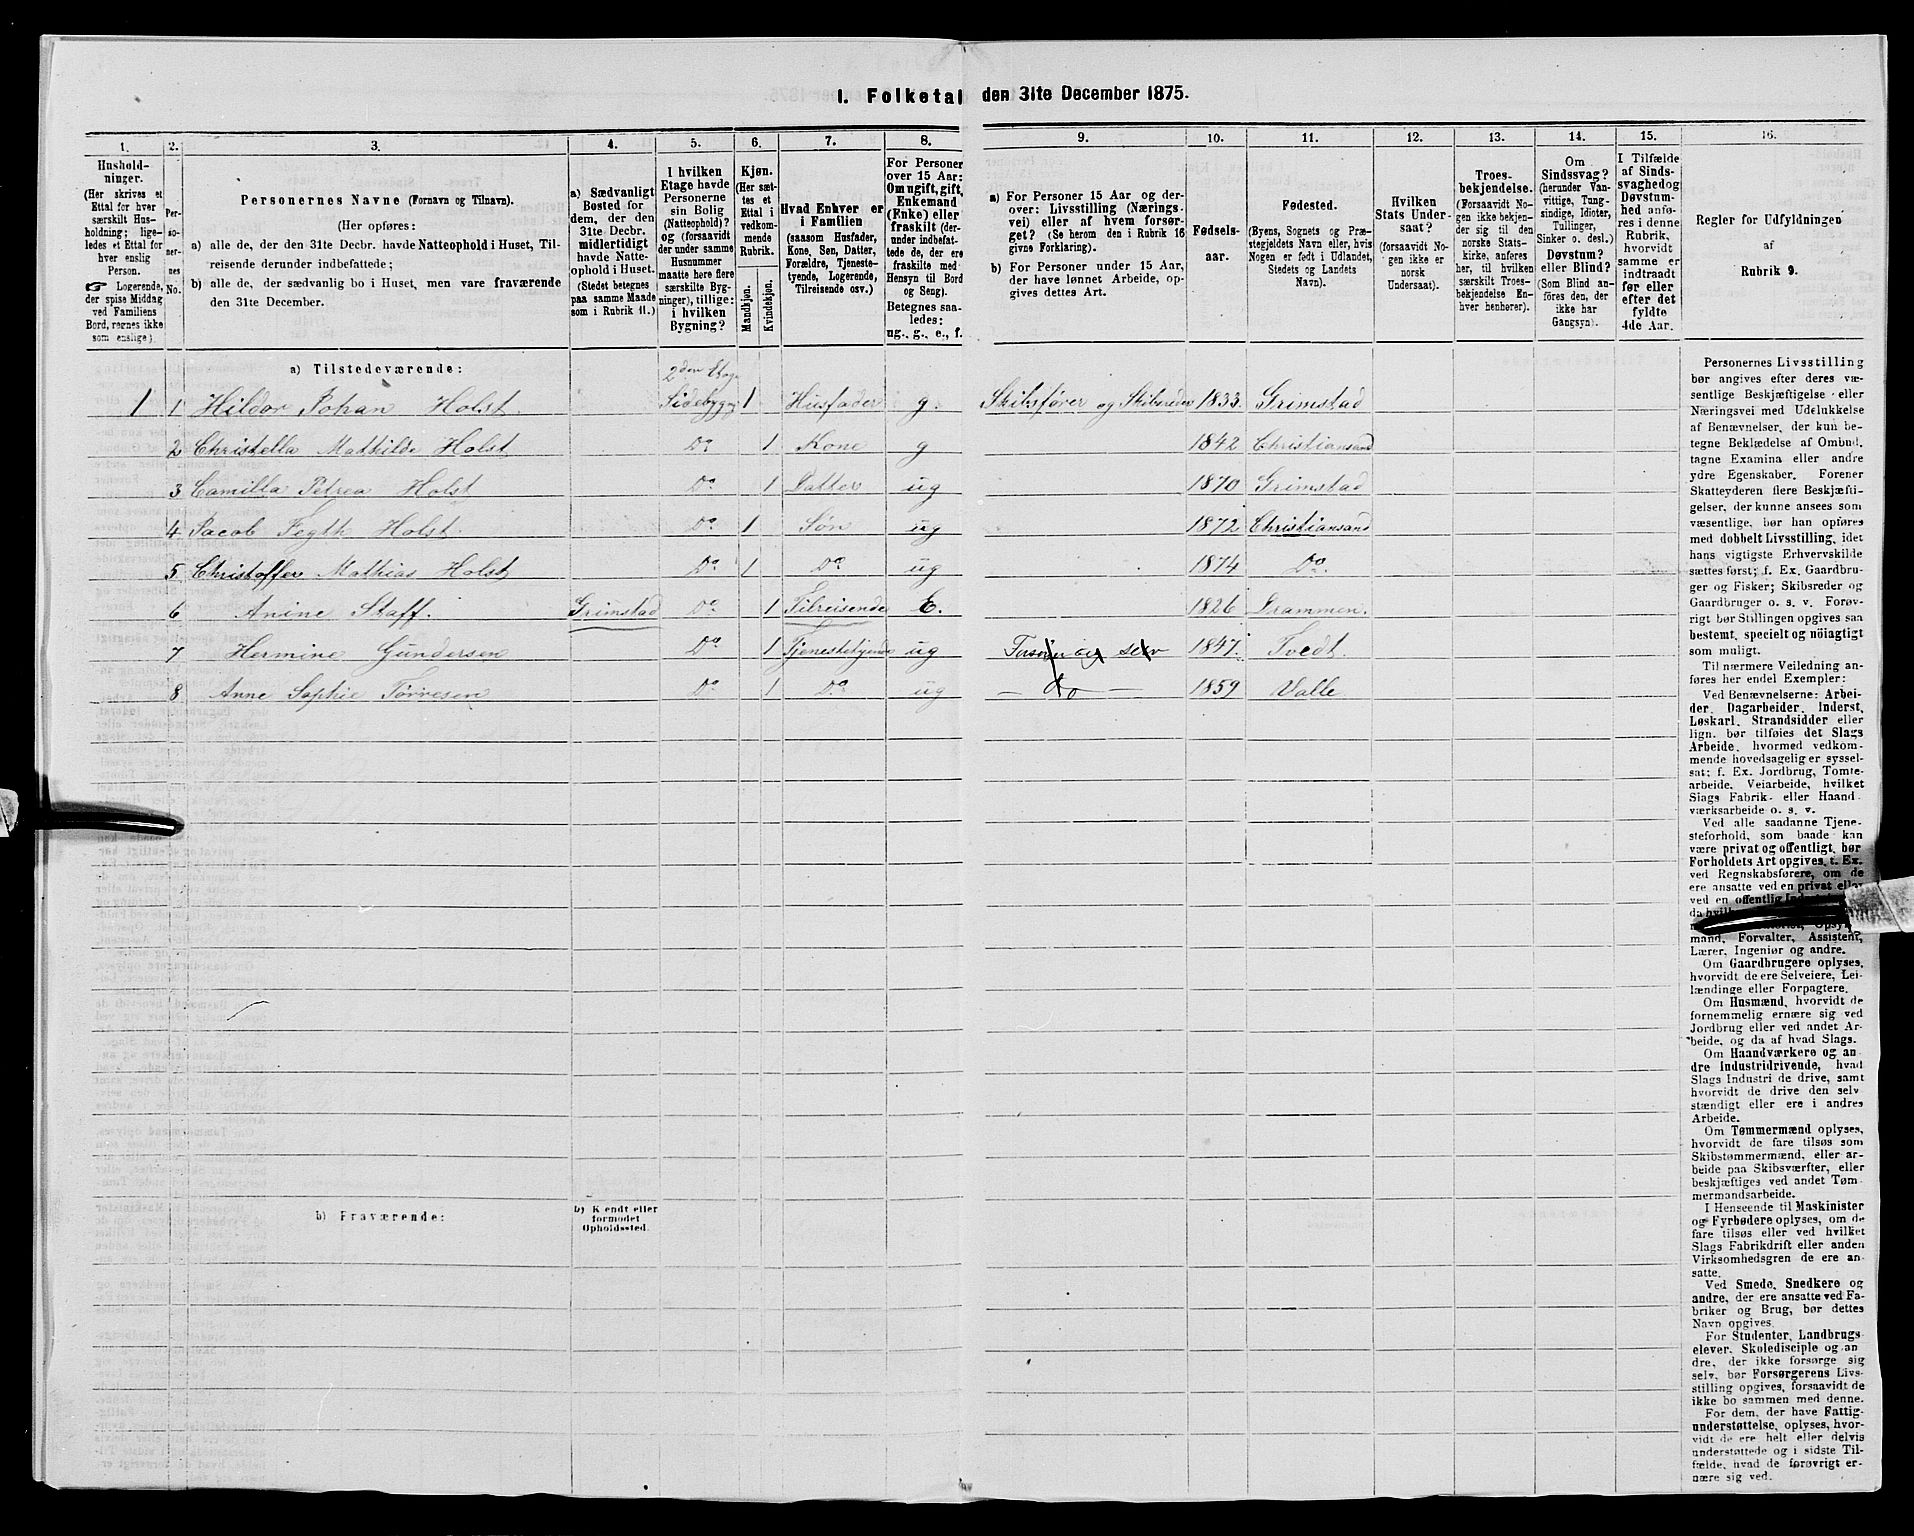 I. Folketal den 31te December 1875.
1.
2.
3.
4.
5.
6.
7.
8.
9.
10.
11.
12.
13.
14.
15.
16.
Hushold-
ninger.
(Her skrives et
Ettal for hver
særskilt Hus-
holdning; lige-
ledes et Ettal for
hver enslig
Person.
☛ Logerende,
der spise Middag
ved Familiens
Bord, regnes ikke
som enslige).
Per-
so-
ner-
nes
No.
Personernes Navne (Fornavn og Tilnavn).
(Her opføres:
a) alle de, der den 31te Decbr. havde Natteophold i Huset, Til-
reisende derunder indbefattede;
b) alle de, der sædvanlig bo i Huset, men vare fraværende
den 31te December.
a) Sædvanligt
Bosted for
dem, der den
31te Decbr.
midlertidigt
havde Natte-
ophold i Huset.
(Stedet betegnes
paa samme Maade
som i Rubrik 11.)
I hvilken
Etage havde
Personerne
sin Bolig
(Natteophold)?
og (forsaavidt
der under samme
Husnummer
maatte here flere
særskilte Byg-
ninger), tillige:
i hvilken
Bygning?
Kjøn.
(Her sæt-
tes et
Ettal i
vedkom-
mende
Rubrik.
Mandkjøn.
Kvindekjøn.
Hvad Enhver er
i Familien
(saasom Husfader,
Kone, Søn, Datter,
Forældre, Tjeneste-
tyende, Logerende,
Tilreisende osv.)
For Personer
over 15 Aar:
Om ugift, gift,
Enkemand
(Enke) eller
fraskilt (der-
under indbefat-
tede de, der ere
fraskilte med
Hensyn til Bord
og Seng).
Betegnes saa-
ledes:
ug., g., e., f.
a) For Personer 15 Aar og der-
over: Livsstilling (Nærings-
vei) eller af hvem forsør-
get? (Se herom den i Rubrik 16
givne Forklaring).
b) For Personer under 15 Aar,
der have lønnet Arbeide, op-
gives dettes Art.
Fødsels-
aar.
Fødested.
(Byens, Sognets og Præ-
stegjeldets Navn eller, hvis
Nogen er født i Udlandet,
Stedets og Landets
Navn).
Hvilken
Stats Under-
saat?
(forsaavidt No-
gen ikke er
norsk
Undersaat).
Troes-
bekjendelse.
(Forsaavidt No-
gen ikke bekjen-
der sig til den
norske Stats-
kirke, anføres
her, til hvilken
særskilt Troes-
bekjendelse En-
hver henhører).
Om
Sindssvag?
(herunder Van-
vittige, Tung-
sindige, Idioter,
Tullinger,
Sinker o. desl.)
Døvstum?
eller Blind?
(Som Blind an-
føres den, der
ikke har
Gangsyn).
I Tilfælde
af Sinds-
svaghed og
Døvstum-
hed anfø-
res i denne
Rubrik,
hvorvidt
samme er
indtraadt
før eller
efter det
fyldte
4de Aar.
Regler for Udfyldningen
af
Rubrik 9.
a) Tilstedeværende:
1 1 Hildor Johan Holst. 2den Etage Sidebygng 1 Husfader g. Skibsfører og Skibsreder 1833. Grimstad
2 Christella Mathilde Holst Do 1 Kone g 1842 Christiansand
3 Camilla Petrea Holst Do 1 Datter ug 1870 Grimstad
4 Jacob Fegth Holst. Do 1 Søn ug 1872 Christiansand
5 Christoffer Mathias Holst Do 1 Do ug 1874 Do.
6 Anine Staff. Grimstad Do 1 Tilreisende E. 1826 Drammen.
7 Hermine Gundersen Do 1 Tjenestetyende ug Forsørger sig selv 1847. Tvedt.
8 Anne Sophie Tørresen Do 1 Do ug — do — 1859 Valle.
b) Fraværende:
b) Kendt eller
formodet
Opholdssted.
Personernes Livsstilling
bør angives efter deres væ-
sentlige Beskjæftigelse eller
Næringsvei med Udelukkelse
af Benævnelser, der kun be-
tegne Beklædelse af Ombud,
tagne Examina eller andre
ydre Egenskaber. Forener
Skatteyderen flere Beskjæfti-
gelser, der kunne ansees som
væsentlige, bør han opføres
med dobbelt Livsstilling, idet
hans vigtigste Erhvervskilde
sættes først; f. Ex. Gaardbru-
ger og Fisker; Skibsreder og
Gaardbruger o. s. v. Forøv-
rigt bør Stillingen opgives saa
bestemt, specielt og nøiagtigt
som muligt.
Til nærmere Veiledning an-
føres her endel Exempler:
Ved Benævnelserne: Arbei-
der, Dagarbeider, Inderst,
Løskarl, Strandsidder eller
lign. bør tilføies det Slags
Arbeide, hvormed vedkom-
mende hovedsagelig er syssel-
sat; f. Ex. Jordbrug, Tomte-
arbeide, Veiarbeide, hvilket
Slags Fabrik- eller Haand-
værksarbeide o. s. v.
Ved alle saadanne Tjene-
steforhold, som baade kan
være privat og offentligt, bør
Forholdets Art opgives, t. Ex.
ved Regnskabsførere, om de
ere ansatte ved en privat eller
ved en offentlig
da
mand, Forvalter, Assistent,
Lærer, Ingeniør og andre.
Om Gaardbrugere oplyses,
hvorvidt de ere Selveiere, Lei-
lændinge eller Forpagtere.
Om Husmænd, hvorvidt de
fornemmelig ernære sig ved
Jordbrug eller ved andet Ar-
beide, og da af hvad Slags.
Om Haandværkere og an-
dre Industridrivende, hvad
Slags Industri de drive, samt
hvorvidt de drive den selv-
stændigt eller ere i andres
Arbeide.
Om Tømmermænd oplyses,
hvorvidt de fare tilsøs som
Skibstømmermænd, eller ar-
beide paa Skibsværfter, eller
beskjæftiges ved andet Tøm-
mermandsarbeide.
I Henseende til Maskinister
og Fyrbødere oplyses, om de
fare tilsøs eller ved hvilket
Slags Fabrikdrift eller anden
Virksomhedsgren de ere an-
satte.
Ved Smede, Snedkere og
andre, der ere ansatte ved Fa-
briker og Brug, bør dettes
Navn opgives.
For Studenter, Landbrugs-
elever, Skoledisciple og an-
dre, der ikke forsørge sig
selv, bør Forsørgerens Livs-
stilling opgives, forsaavidt de
ikke bo sammen med denne.
For dem, der have Fattig-
understøttelse, oplyses, hvor-
vidt de ere helt eller delvis
understøttede og i sidste Til-
fælde, hvad de forøvrigt er-
nære sig ved.